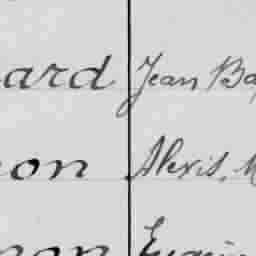 ard Jean Ba
on Alexis, M